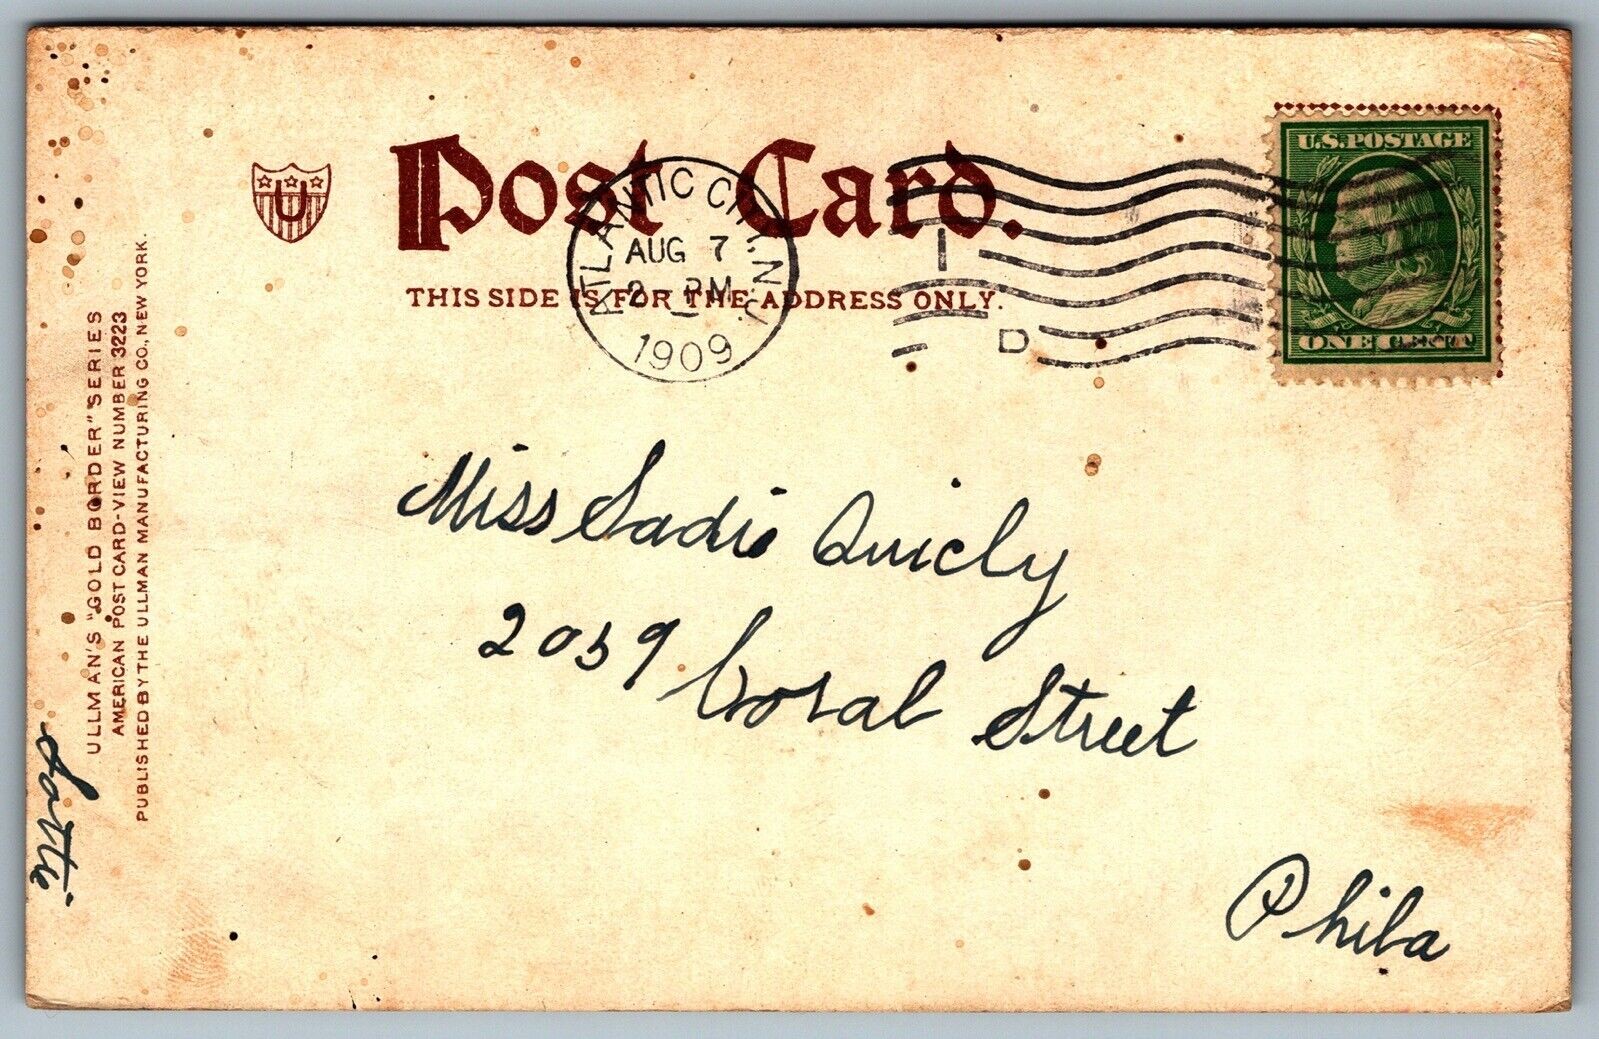 Post Card.
THIS SIDE IS FOR THE ADDRESS ONLY.
U
ATLANTIC CITY, N.J.
AUG 7
2 - PM
1909
1
D
U.S. POSTAGE
ONE CENT
ULLMAN'S "GOLD BORDER" SERIES
AMERICAN POST CARD-VIEW NUMBER 3223
PUBLISHED BY THE ULLMAN MANUFACTURING CO., NEW YORK.
Miss Sadie Quicly
2059 Coral Street
Phila